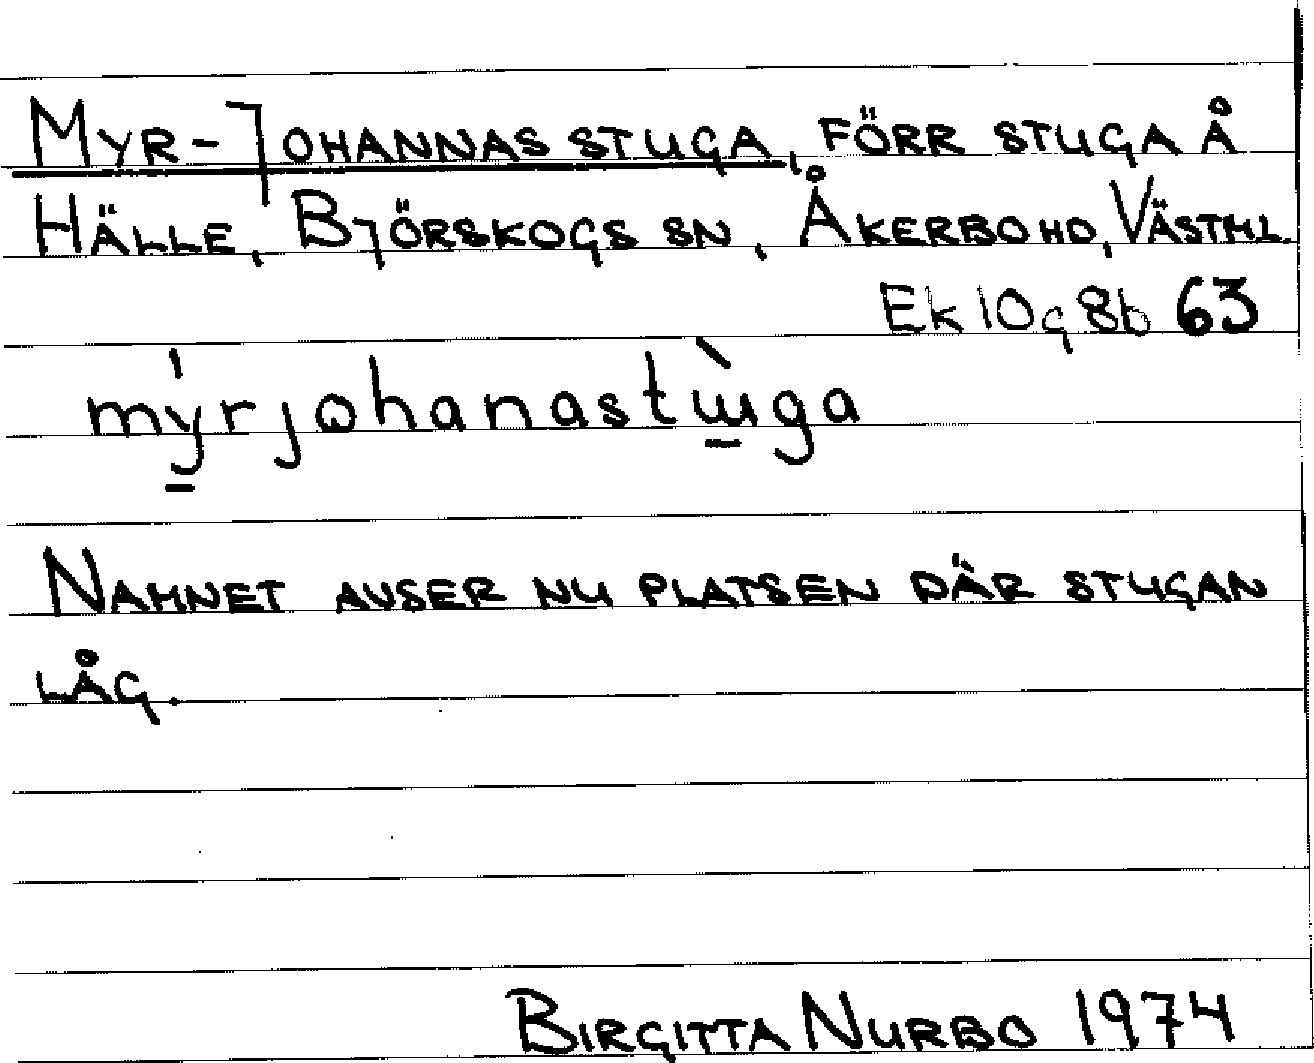 Myr-Johannas stuga, förr stuga å
Hälle, Björskogs sn, Åkerbo hd, Västml.
Ek 10g 8b 63
mýrjohanastɯ̀ga
Namnet avser nu platsen där stugan
låg.
Birgitta Nurbo 1974